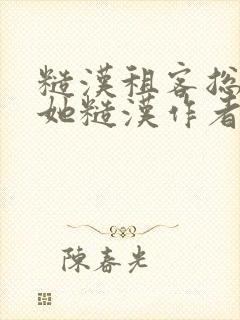 糙漢租客總
她糙漢作者
陳春光